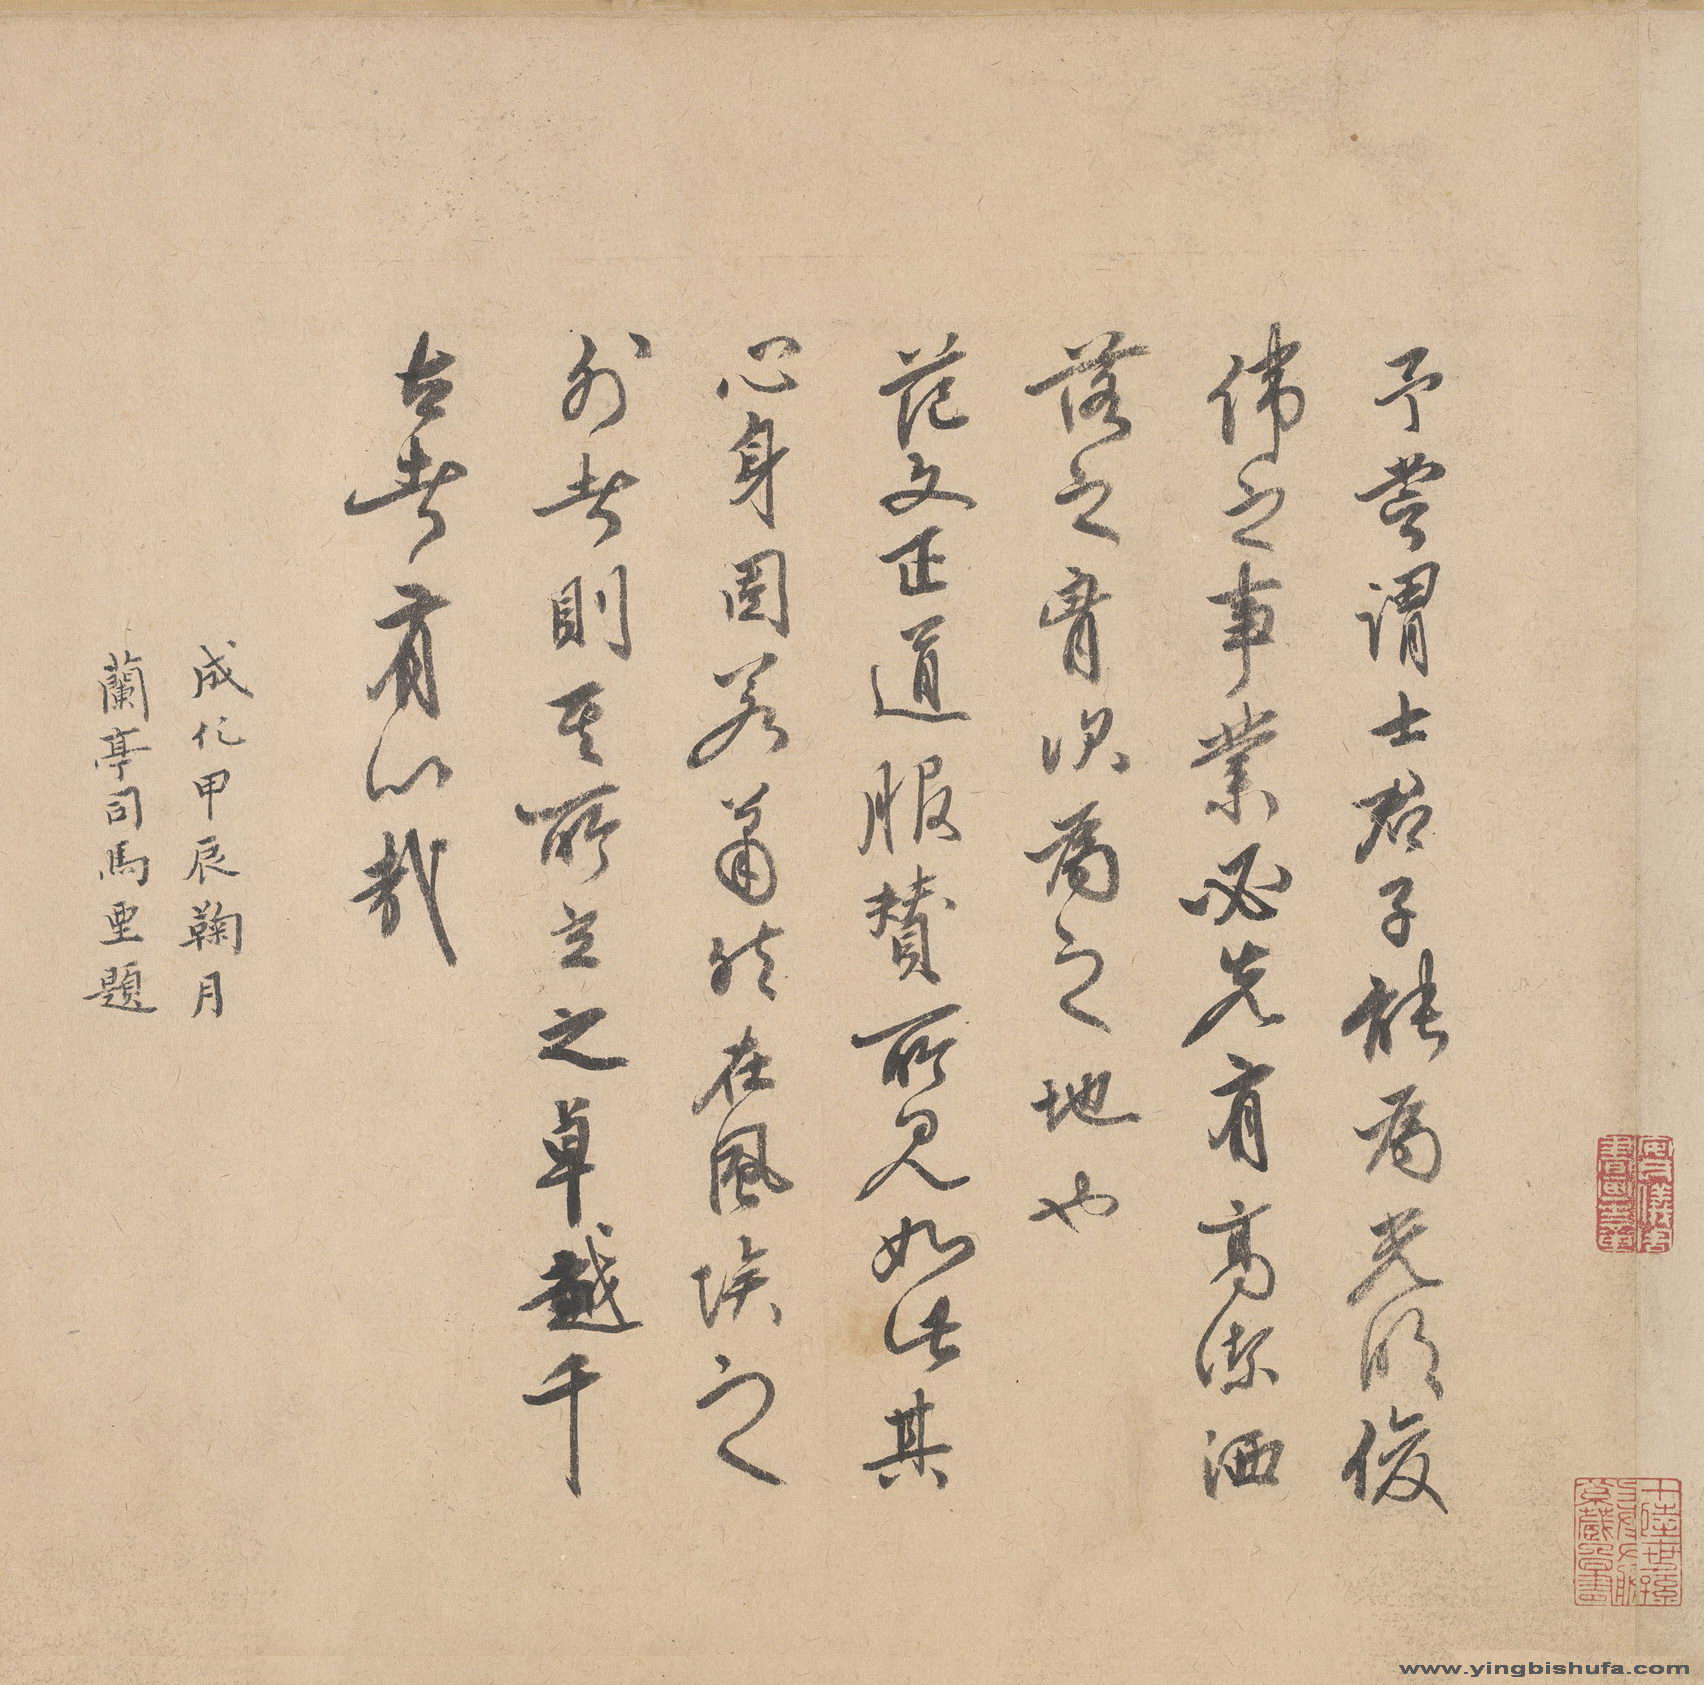 予嘗謂士君子能為光明俊
偉之事業必先有高潔洒
落之胷次為之地也
范文正道服贊所見如此其
心身固若蕭然在風埃之
外者則其所立之卓越千
古者有以哉
成化甲辰鞠月
蘭亭司馬垔題
www.yingbishufa.com